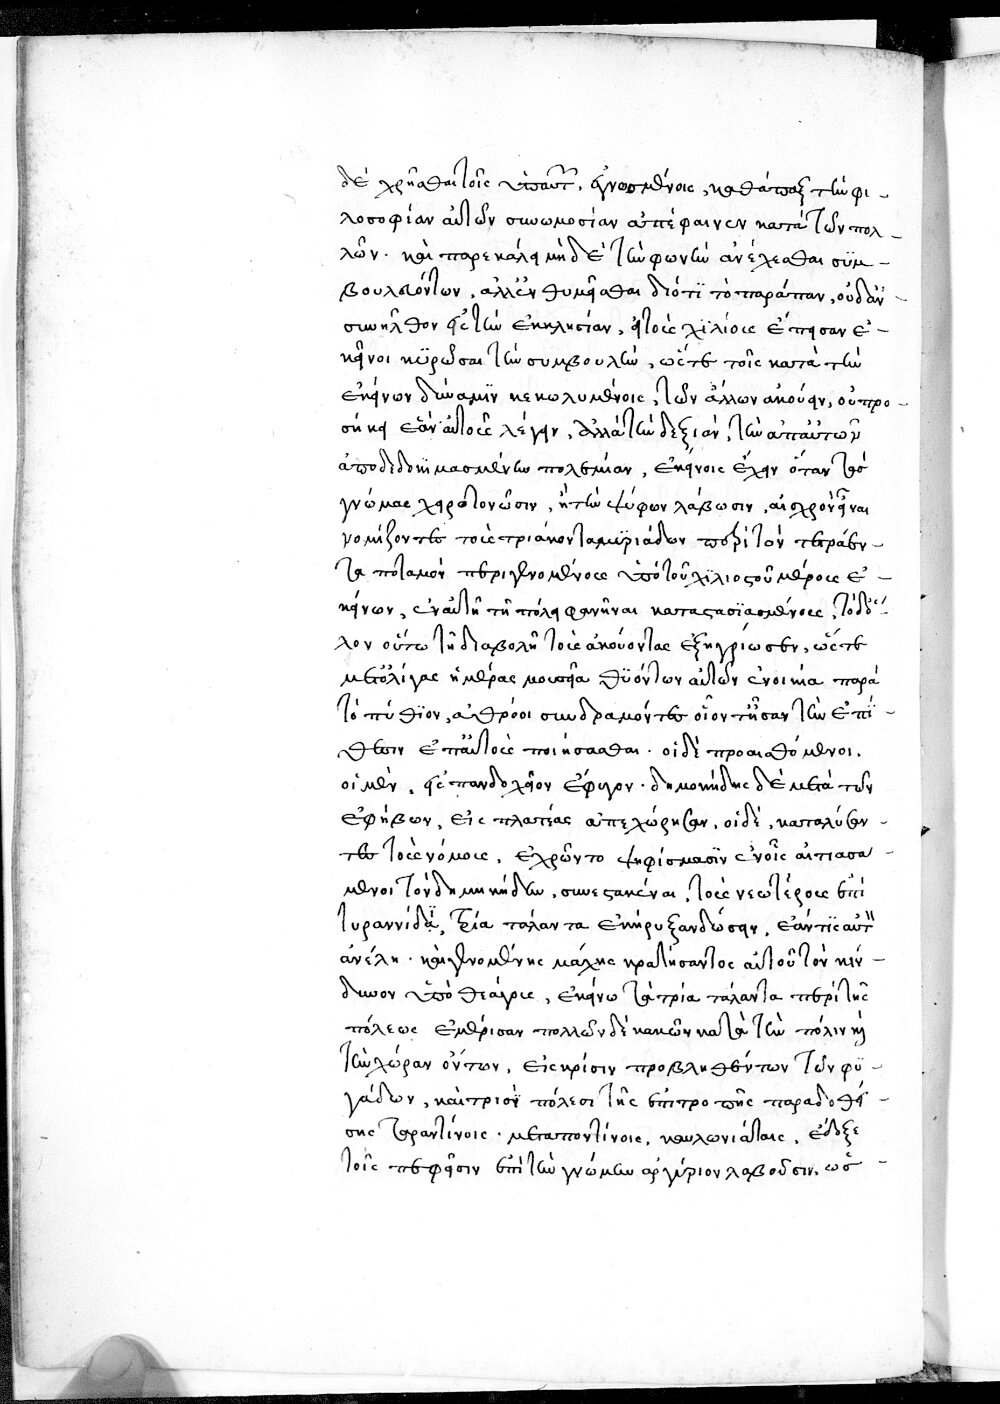 δὲ χρῆσθαι τοῖς ὑπ' αὐτῶν. εἰρημένοις, καθάπαξ τὴν φι-
λοσοφίαν αὐτῶν συνωμοσίαν ἀπέφαινεν κατὰ τῶν πολ-
λῶν. καὶ παρεκάλει μηδὲ τὴν φωνὴν ἀνέχεσθαι συμ-
βουλευόντων, ἀλλ' ἐνθυμεῖσθαι διότι τὸ παράπαν, οὐδ' ἂν
συνῆλθον εἰς τὴν ἐκκλησίαν, εἰ τοὺς χιλίους ἔπεισαν ἐ-
κεῖνοι κυρῶσαι τὴν συμβουλήν, ὥστε τοῖς κατὰ τὴν
ἐκείνων δύναμιν κεκωλυμένοις, τῶν ἄλλων ἀκούειν, οὐ προ-
σήκει ἐᾶν αὐτοὺς λέγειν, ἀλλὰ τὴν δεξιὰν, τὴν ἀπ' αὐτῶν
ἀποδεδοκιμασμένην πολεμίαν, ἐκείνοις ἔχειν ὅταν τὰς
γνώμας χειροτονῶσιν, ἢ τὴν ψῆφον λάβωσιν, αἰσχρὸν εἶναι
νομίζοντες τοὺς τριάκοντα μυριάδων περὶ τὸν τετράεν-
τα ποταμὸν περιγενομένους ὑπὸ τοῦ χιλιοστοῦ μέρους ἐ-
κείνων, ἐν αὐτῇ τῇ πόλει φανῆναι κατεστασιασμένους, τὸ δ' ὅ-
λον οὕτω τῇ διαβολῇ τοὺς ἀκούοντας ἐξηγρίωσεν, ὥστε
μετ' ὀλίγας ἡμέρας μουσεῖα θυόντων αὐτῶν ἐν οἰκίᾳ παρὰ
τὸ πύθιον, ἀθρόοι συνδραμόντες οἷοί τ' ἦσαν τὴν ἐπί-
θεσιν ἐπ' αὐτοὺς ποιήσασθαι. οἱ δὲ προαισθόμενοι.
οἱ μὲν, εἰς πανδοχεῖον ἔφυγον. δημοκήδης δὲ μετὰ τῶν
ἐφήβων, εἰς πλατέας ἀπεχώρησεν. οἱ δὲ, καταλύσαν-
τες τοὺς νόμους, ἐχρῶντο ψηφίσμασιν ἐν οἷς αἰτιασά-
μενοι τὸν δημοκήδην, συνεστακέναι, τοὺς νεωτέρους ἐπὶ
τυραννίδι, τρία τάλαντα ἐκήρυξαν δώσειν, ἐάν τις αὐτὸν
ἀνέλῃ. καὶ γενομένης μάχης κρατήσαντος αὐτοῦ τὸν κίν-
δυνον ὑπὸ θεάγους, ἐκείνῳ τὰ τρία τάλαντα περὶ τῆς
πόλεως ἐμέρισαν πολλῶν δὲ κακῶν κατὰ τὴν πόλιν καὶ
τὴν χώραν ὄντων, εἰς κρίσιν προβληθέντων τῶν φυ-
γάδων, καὶ τρισὶ πόλεσι τῆς ἐπιτροπῆς παραδοθεί-
σης ταραντίνοις. μεταποντίνοις, καυλωνιάταις, ἔδοξε
τοῖς πεμφθεῖσιν ἐπὶ τὴν γνώμην ἀργύριον λαβοῦσιν, ὡς